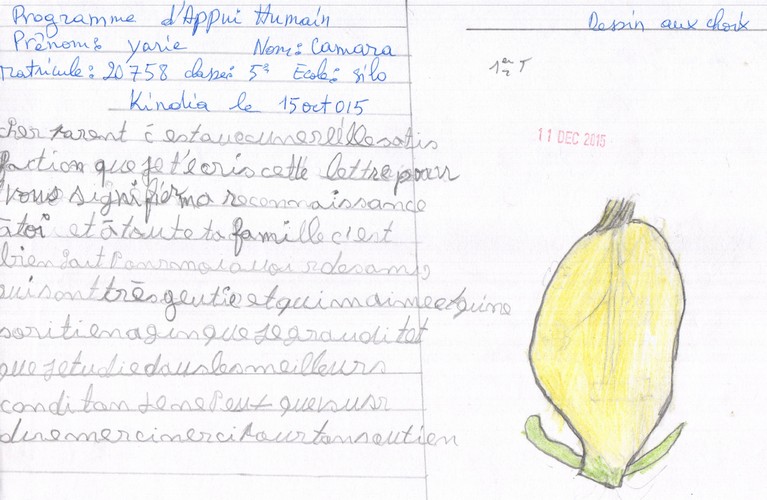 Programme d'Appui Humain
Prénom: yarie Nom: Camara
matricule: 20758 classe: 5ª Ecole: silo
Kindia le 15 oct 015
cher parent c estavecunerééllesatis
faction que je t'écris cette lettre pour
vous signifier ma reconnaissance
àtoi et àtoute ta famille c'est
bien fait Pourmoiavoirdesamis
quisonttrès gentie etquimaimeetquime
soritienaginqueJegrauditet
queJetudiedauslesmeilleurs
conditonJenePeut quevusr
diremercimerciPourtonsoutien
Dessin aux choix
1er T
11 DEC 2015